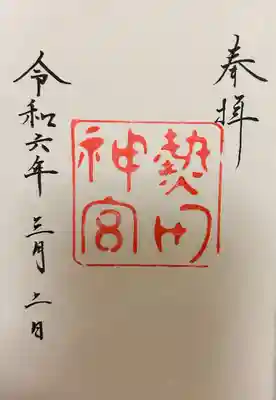 奉拝
熱田
神宮
令和六年三月二日